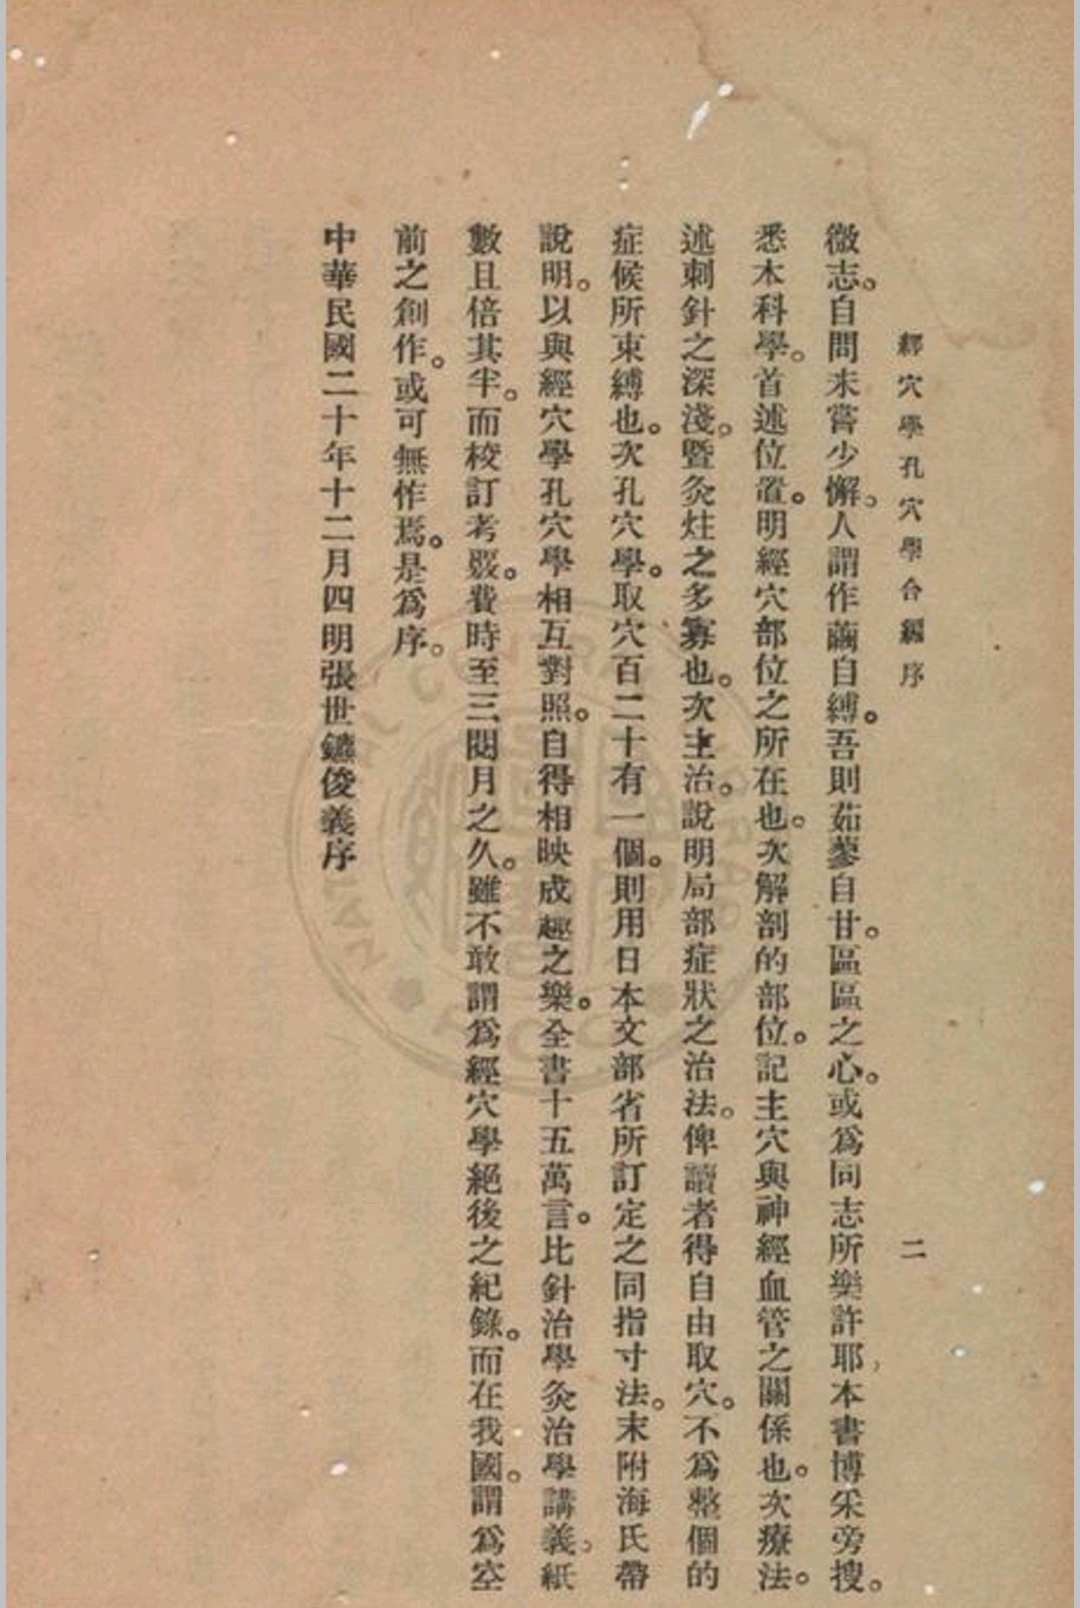 經穴學孔穴學合編序
二
微志。自問未嘗少懈。人謂作繭自縛。吾則茹蓼自甘。區區之心。或爲同志所樂許耶。本書博采旁搜。
悉本科學。首述位置。明經穴部位之所在也。次解剖的部位。記主穴與神經血管之關係也。次療法。
述刺針之深淺。暨灸炷之多寡也。次主治。說明局部症狀之治法。俾讀者得自由取穴。不爲整個的
症候所束縛也。次孔穴學。取穴百二十有一個。則用日本文部省所訂定之同指寸法。末附海氏帶
說明。以與經穴學孔穴學相互對照。自得相映成趣之樂。全書十五萬言。比針治學灸治學講義。紙
數且倍其半。而校訂考覈。費時至三閱月之久。雖不敢謂爲經穴學絕後之紀錄。而在我國。謂爲空
前之創作。或可無怍焉。是爲序。
中華民國二十年十二月四明張世鑣俊義序